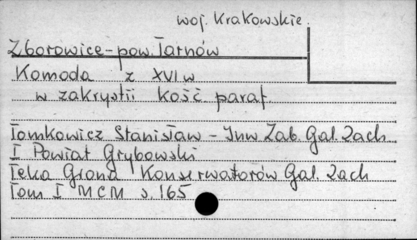 woj. Krakowskie.
Zborowice - pow. Tarnów
Komoda z XVI w
w zakrystii kość paraf.
Tomkowicz Stanisław - Inw Zab. Gal. Zach
I Powiat Grybowski
Teka Grona Konserwatorów Gal. Zach
Tom I MCM s. 165